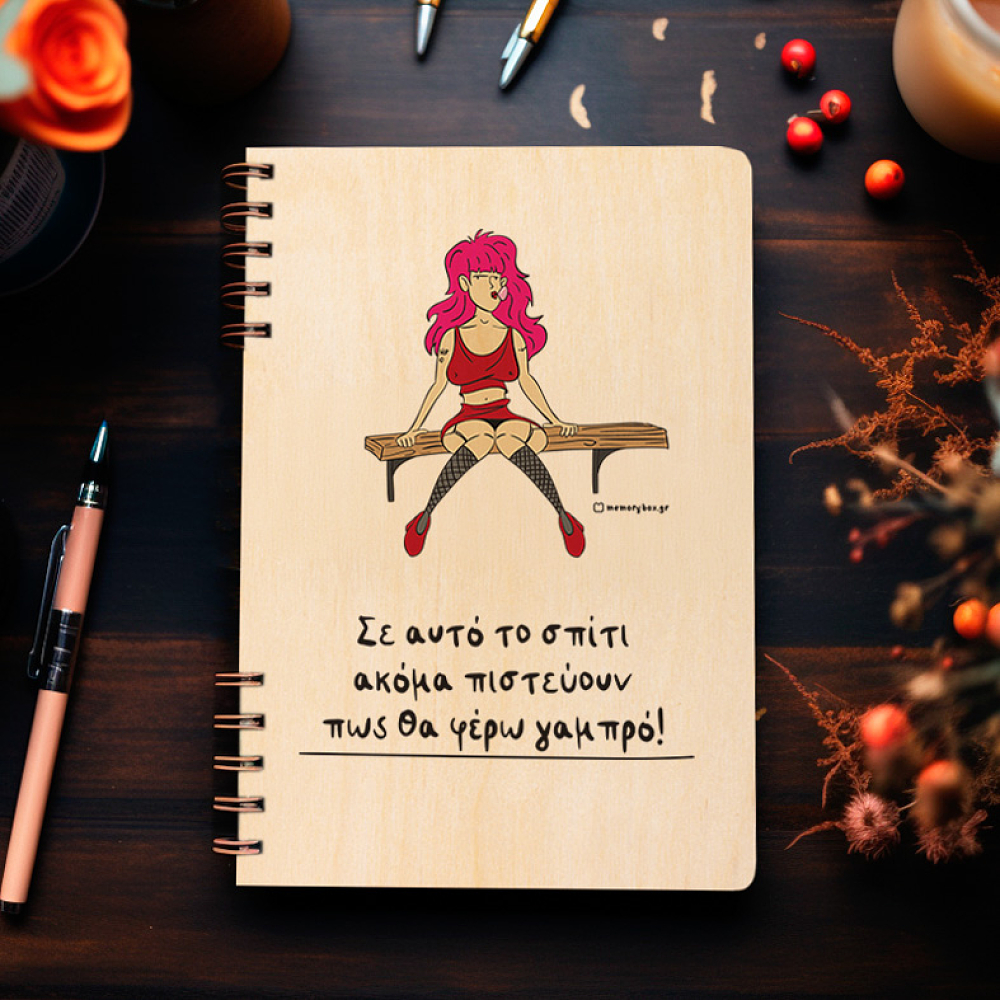 memorybox.gr
Σε αυτό το σπίτι
ακόμα πιστεύουν
πως θα φέρω γαμπρό!